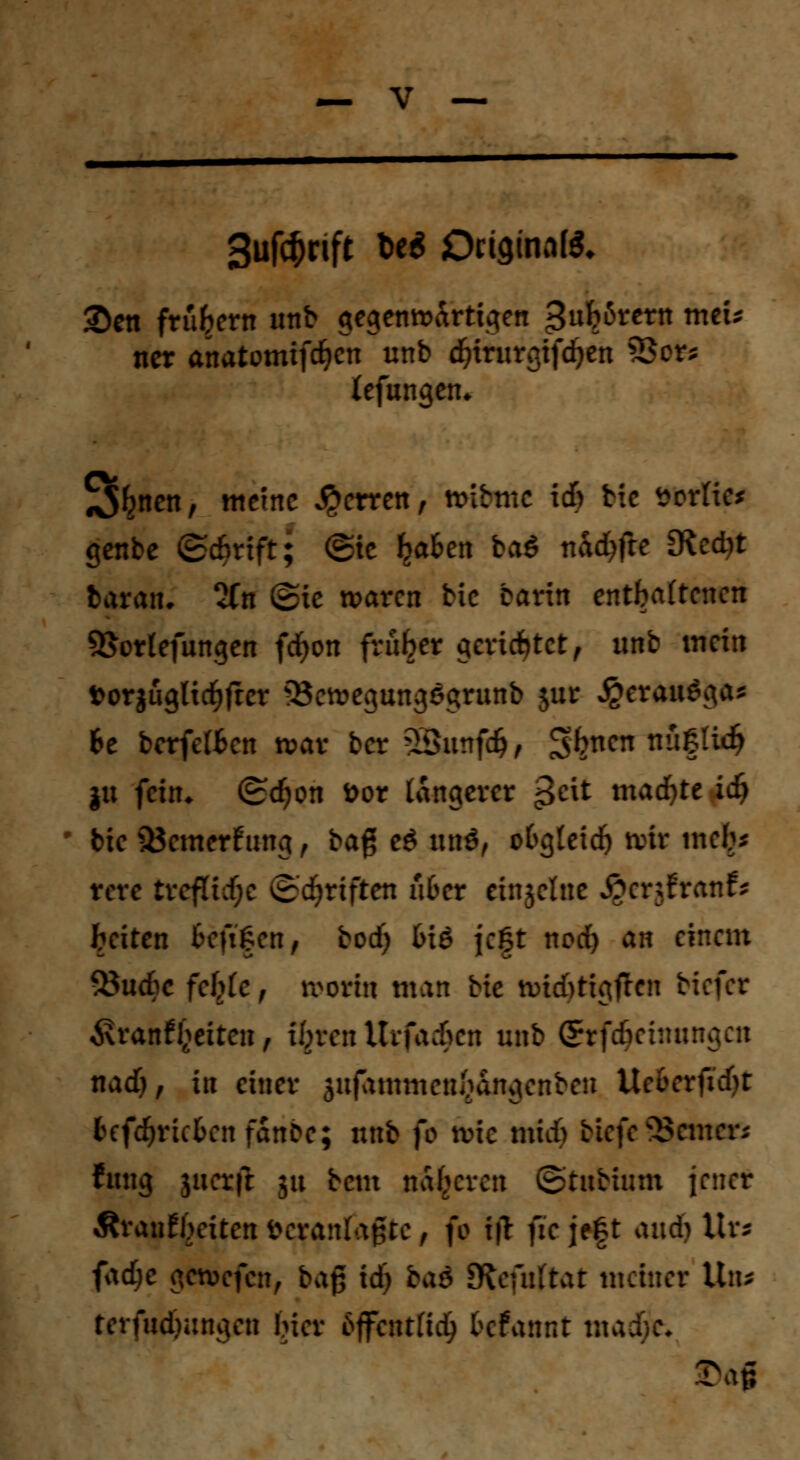 — V —
Zuschrift des Originals.
Den frühern und gegenwärtigen Zuhörern mei-
ner anatomischen und chirurgischen Vor-
lesungen.
Ihnen, meine Herren, widme ich die vorlie-
gende Schrift; Sie haben das nächste Recht
daran. An Sie waren die darin enthaltenen
Vorlesungen schon früher gerichtet, und mein
vorzüglichster Bewegungsgrund zur Herausga-
be derselben war der Wunsch, Ihnen nüßlich
zu sein. Schon vor längerer Zeit machte ich
die Bemerkung, daß es uns, obgleich wir meh-
rere trefliche Schriften über einzelne Herzkrank-
heiten besißen, doch bis jeßt noch an einem
Buche fehle, worin man die wichtigsten dieser
Krankheiten, ihren Ursachen und Erscheinungen
nach, in einer zusammenhängenden Uebersicht
beschrieben fände; und so wie mich diese Bemer-
kung zuerst zu dem näheren Studium jener
Krankheiten veranlaßte, so ist sie jeßt auch Ur-
sache gewesen, daß ich das Resultat meiner Un-
tersuchungen hier öffentlich bekannt mache.
Daß